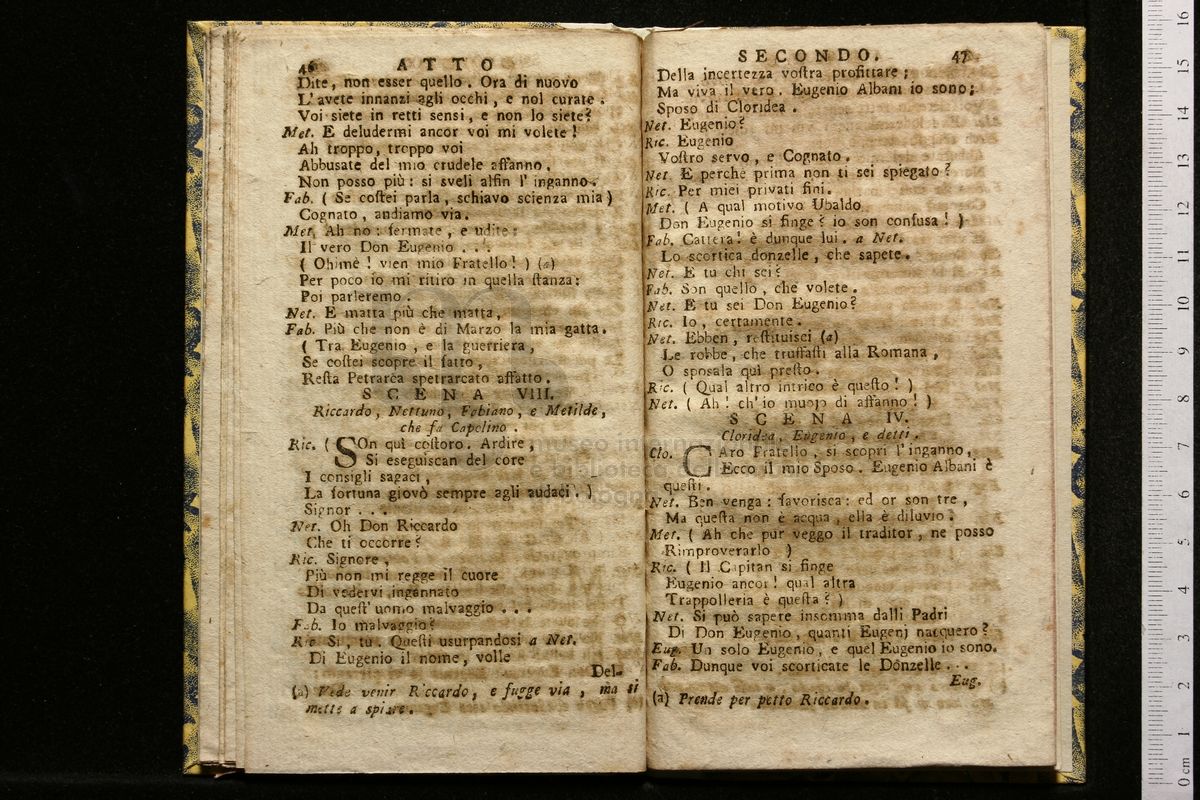 46 ATTO
Dite, non esser quello. Ora di nuovo
L'avete innanzi agli occhi, e nol curate.
Voi siete in retti sensi, e non lo siete?
Met. E deludermi ancor voi mi volete!
Ah troppo, troppo voi
Abbusate del mio crudele affanno.
Non posso più: si sveli alfin l'inganno.
Fab. (Se costei parla, schiavo scienza mia)
Cognato, andiamo via.
Met. Ah no: fermate, e udite:
Il vero Don Eugenio ...
(Ohimè! vien mio Fratello!) (a)
Per poco io mi ritiro in quella stanza:
Poi parleremo.
Net. E matta più che matta,
Fab. Più che non è di Marzo la mia gatta.
(Tra Eugenio, e la guerriera,
Se costei scopre il fatto,
Resta Petrarca spetrarcato affatto.
SCENA VIII.
Riccardo, Nettuno, Fabiano, e Metilde,
che fa Capolino.
Ric. (SOn quì costoro. Ardire,
Si eseguiscan del core
I consigli sagaci,
La fortuna giovò sempre agli audaci.)
Signor ...
Net. Oh Don Riccardo
Che ti occorre?
Ric. Signore,
Più non mi regge il cuore
Di vedervi ingannato
Da quest'uomo malvaggio ...
Fab. Io malvaggio?
Ric. Si, tu. Questi usurpandosi a Net.
Di Eugenio il nome, volle
Del-
(a) Vede venir Riccardo, e fugge via, ma si
mette a spiare.
SECONDO. 47
Della incertezza vostra profittare;
Ma viva il vero. Eugenio Albani io sono;
Sposo di Cloridea.
Net. Eugenio?
Ric. Eugenio
Vostro servo, e Cognato.
Net E perchè prima non ti sei spiegato?
Ric. Per miei privati fini.
Met. (A qual motivo Ubaldo
Don Eugenio si finge? io son confusa!)
Fab. Cattera! è dunque lui. a Net.
Lo scortica donzelle, che sapete.
Net. E tu chi sei?
Fab. Son quello, che volete.
Net. E tu sei Don Eugenio?
Ric. Io, certamente.
Net. Ebben, restituisci (a)
Le robbe, che truffasti alla Romana,
O sposala quì presto.
Ric. (Qual altro intrico è questo!)
Net. (Ah! ch'io muojo di affanno!)
SCENA IV.
Cloridea, Eugenio, e detti.
Clo. CAro Fratello, si scoprì l'inganno,
Ecco il mio Sposo. Eugenio Albani è
questi.
Net. Ben venga: favorisca: ed or son tre,
Ma questa non è acqua, ella è diluvio.
Met. (Ah che pur veggo il traditor, ne posso
Rimproverarlo )
Ric. (Il Capitan si finge
Eugenio ancor! qual altra
Trappolleria è questa?)
Net. Si può sapere insomma dalli Padri
Di Don Eugenio, quanti Eugenj nacquero?
Eug. Un solo Eugenio, e quel Eugenio io sono.
Fab. Dunque voi scorticate le Donzelle ...
Eug.
(a) Prende per petto Riccardo.